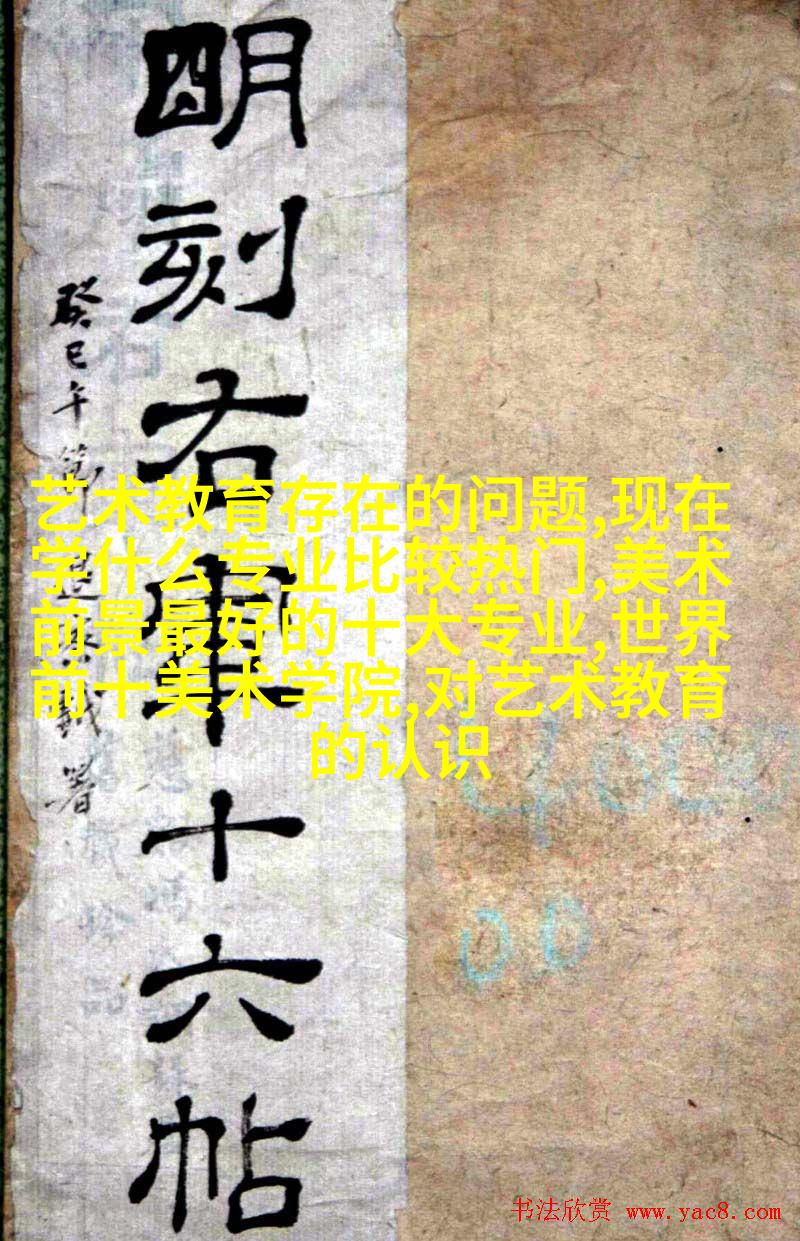 明刻右軍十六帖
癸巳午節
署
艺术教育存在的问题,现在
学什么专业比较热门,美术
前景最好的十大专业,世界
前十美术学院,对艺术教育
的认识
00
书法欣赏 www.yac8.com